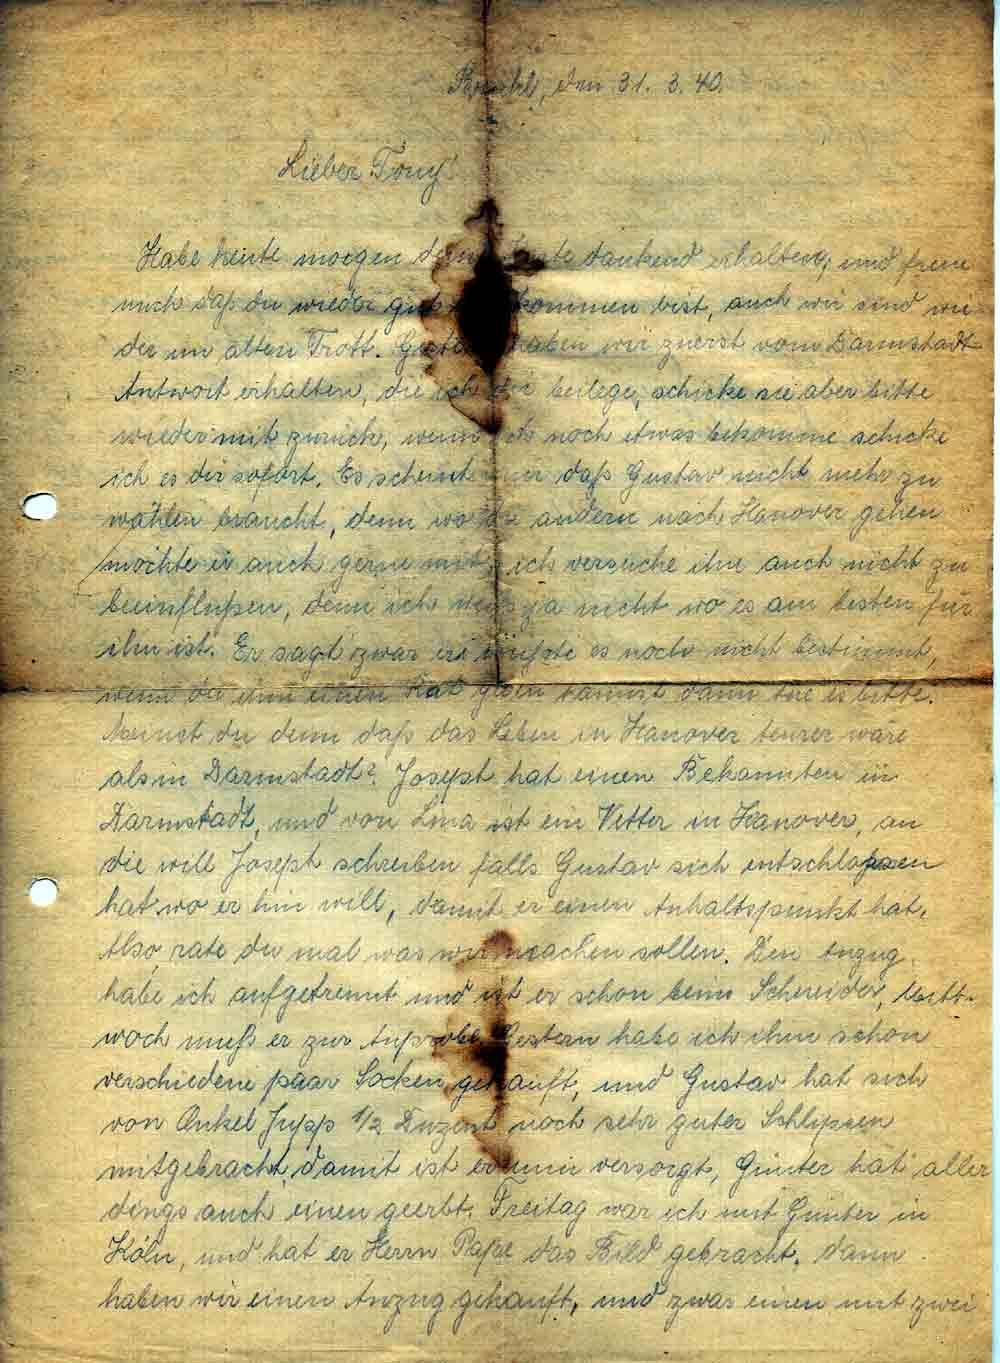 Brühl, den 31. 3. 40.
Lieber Tony!
Habe heute morgen deine Karte dankend erhalten, und freue
mich daß du wieder gut kommen bist, auch wir sind wie-
der im alten Trott. Gestern haben wir zuerst vom Darmstadt
Antwort erhalten, die ich dir beilege, schicke sie aber bitte
wieder mit zurück, wenn ich noch etwas bekomme schicke
ich es dir sofort. Es scheint mir daß Gustav nicht mehr zu
wählen braucht, denn wo die andern nach Hanover gehen
möchte er auch gerne mit, ich versuche ihn auch nicht zu
beeinflußen, denn ich weiß ja nicht wo es am besten für
ihn ist. Er sagt zwar er wüßte es noch nicht bestimmt,
wenn du ihm einen Rat geben kannst dann tue es bitte.
Meinst du denn daß das Leben in Hanover teurer wäre
als in Darmstadt? Joseph hat einen Bekannten in
Darmstadt, und von Lina ist ein Vetter in Hanover, an
die will Joseph schreiben falls Gustav sich entschloßen
hat wo er hin will, damit er einen Anhaltspunkt hat.
Also rate du mal was wir machen sollen. Den Anzug
habe ich aufgetrennt und ist er schon beim Schneider, Mitt-
woch muß er zur Anprobe. Gestern habe ich ihm schon
verschiedene paar Socken gekauft, und Gustav hat sich
von Onkel Jupp 1/2 Duzent noch sehr guter Schlipsen
mitgebracht, damit ist er nun versorgt, Günter hat aller
dings auch einen geerbt. Freitag war ich mit Günter in
Köln, und hat er Herrn Pape das Bild gebracht. dann
haben wir einen Anzug gekauft, und zwar einen mit zwei